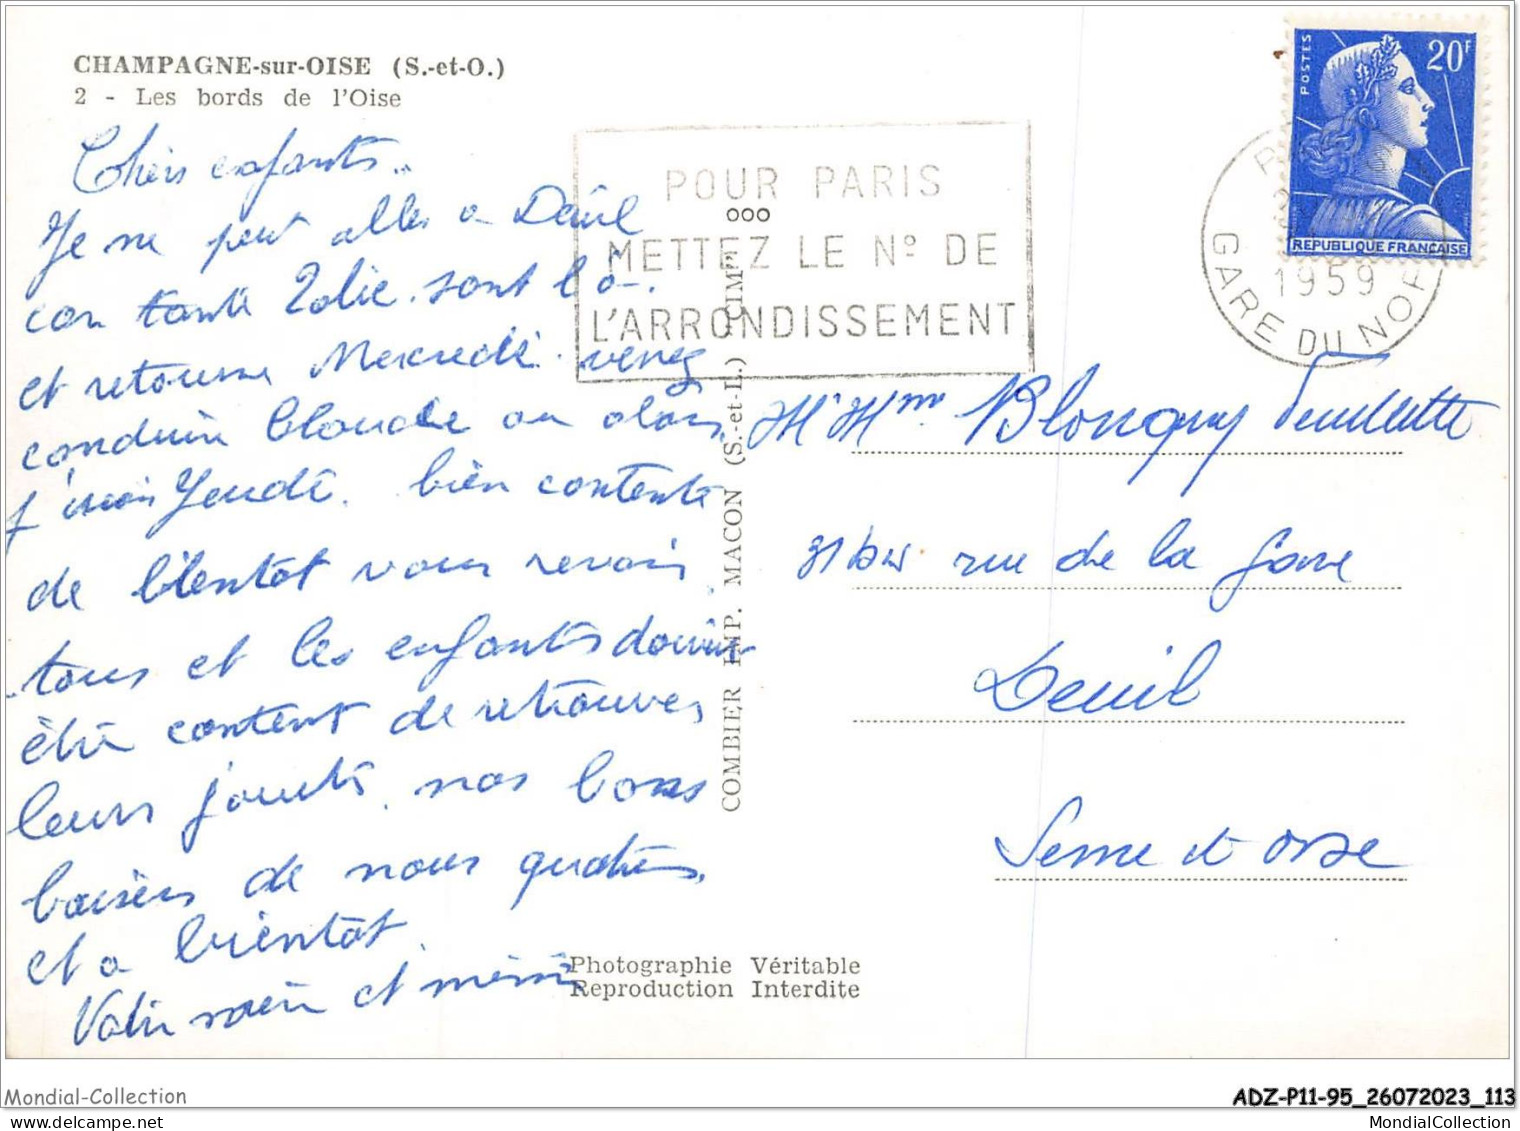 CHAMPAGNE-sur-OISE (S.-et-O.)
2 - Les bords de l'Oise
Chers enfants..
Je ne peut aller a Deuil
car tante Zolie sont là.
et retourne Mercredi. venez
conduire Claude on
Jeudi. bien contente
de bientot vous revoir,
tous et les enfants doivent
être content de retrouver
leurs jouets, nos bons
baisers de nous quatres,
et a bientot.
Votre mère et mémé
POUR PARIS
METTEZ LE Nº DE
L'ARRONDISSEMENT
POSTES
20F
REPUBLIQUE FRANÇAISE
1959
GARE DU NORD
COMBIER IMP. MACON (S.-et-L.) "CIM"
Mr Mme Blongny
31 bis rue de la Gare
Deuil
Seine et Oise
Photographie Véritable
Reproduction Interdite
Mondial-Collection
ADZ-P11-95_26072023_113
MondialCollection